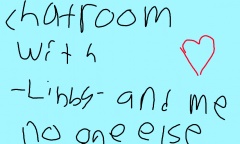 chatroom
with
-Libby- and me
no one else